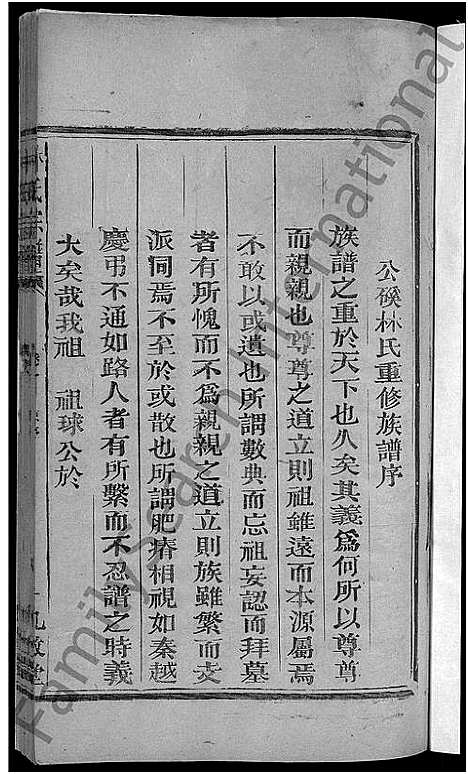 公磎林氏重修族譜序
族譜之重於天下也久矣其義爲何所以尊尊
而親親也尊尊之道立則祖雖遠而本源屬焉
不敢以或遺也所謂數典而忘祖妄認而拜墓
者有所愧而不爲親親之道立則族雖繁而支
派同焉不至於或散也所謂肥瘠相視如秦越
慶弔不通如路人者有所繫而不忍譜之時義
大矣哉我祖　祖球公於
林氏宗譜
FamilySearch International